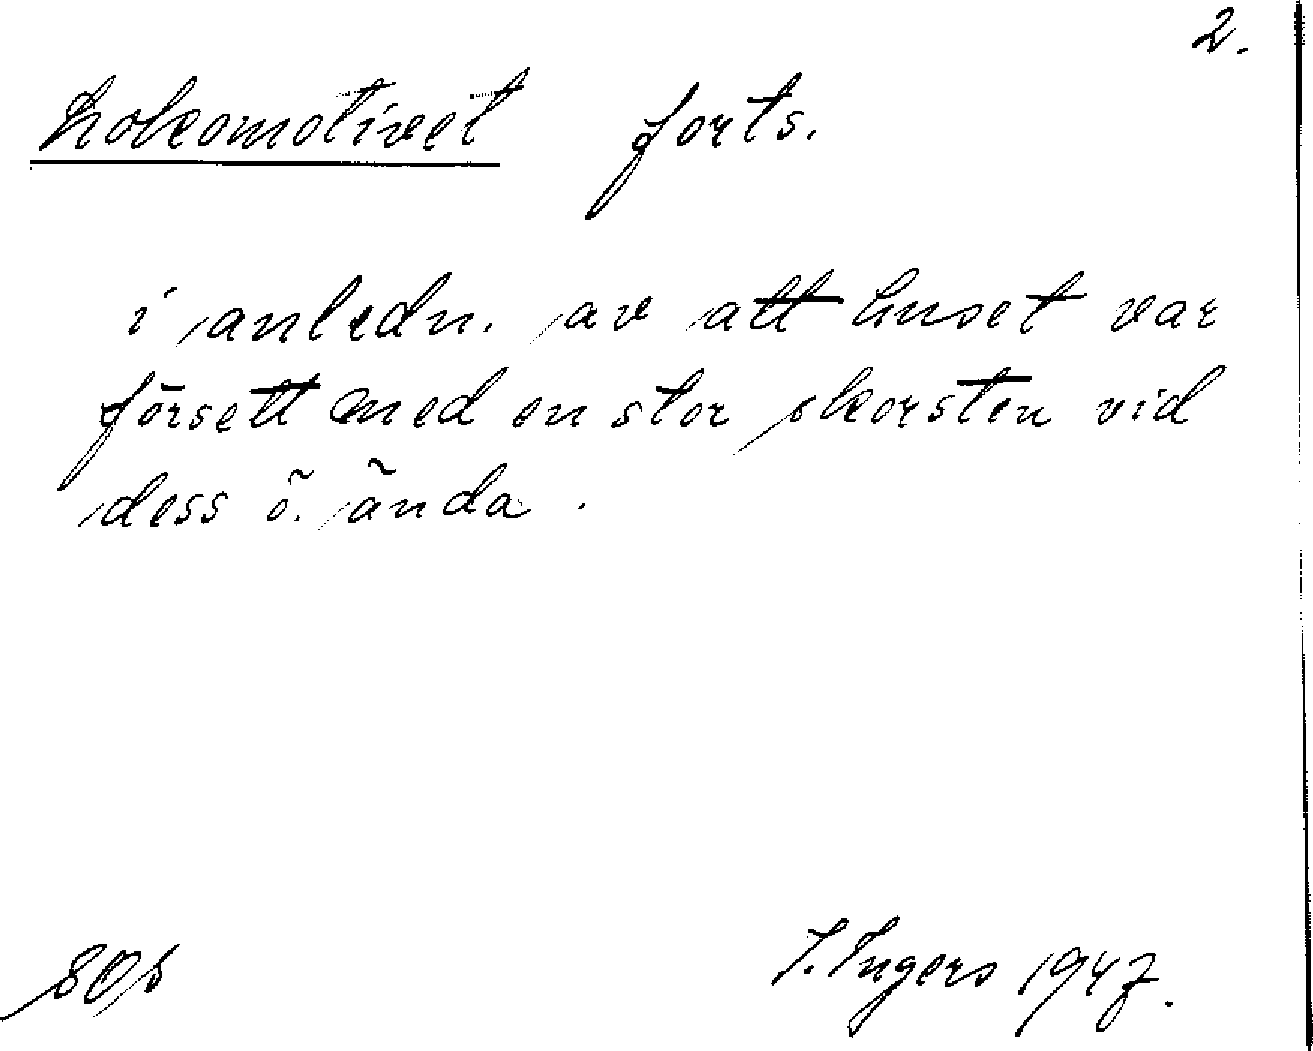 2.
Lokomotivet forts.
i anledn. av att huset var
försett med en stor skorsten vid
dess ö. ända.
I. Ingers 1947.